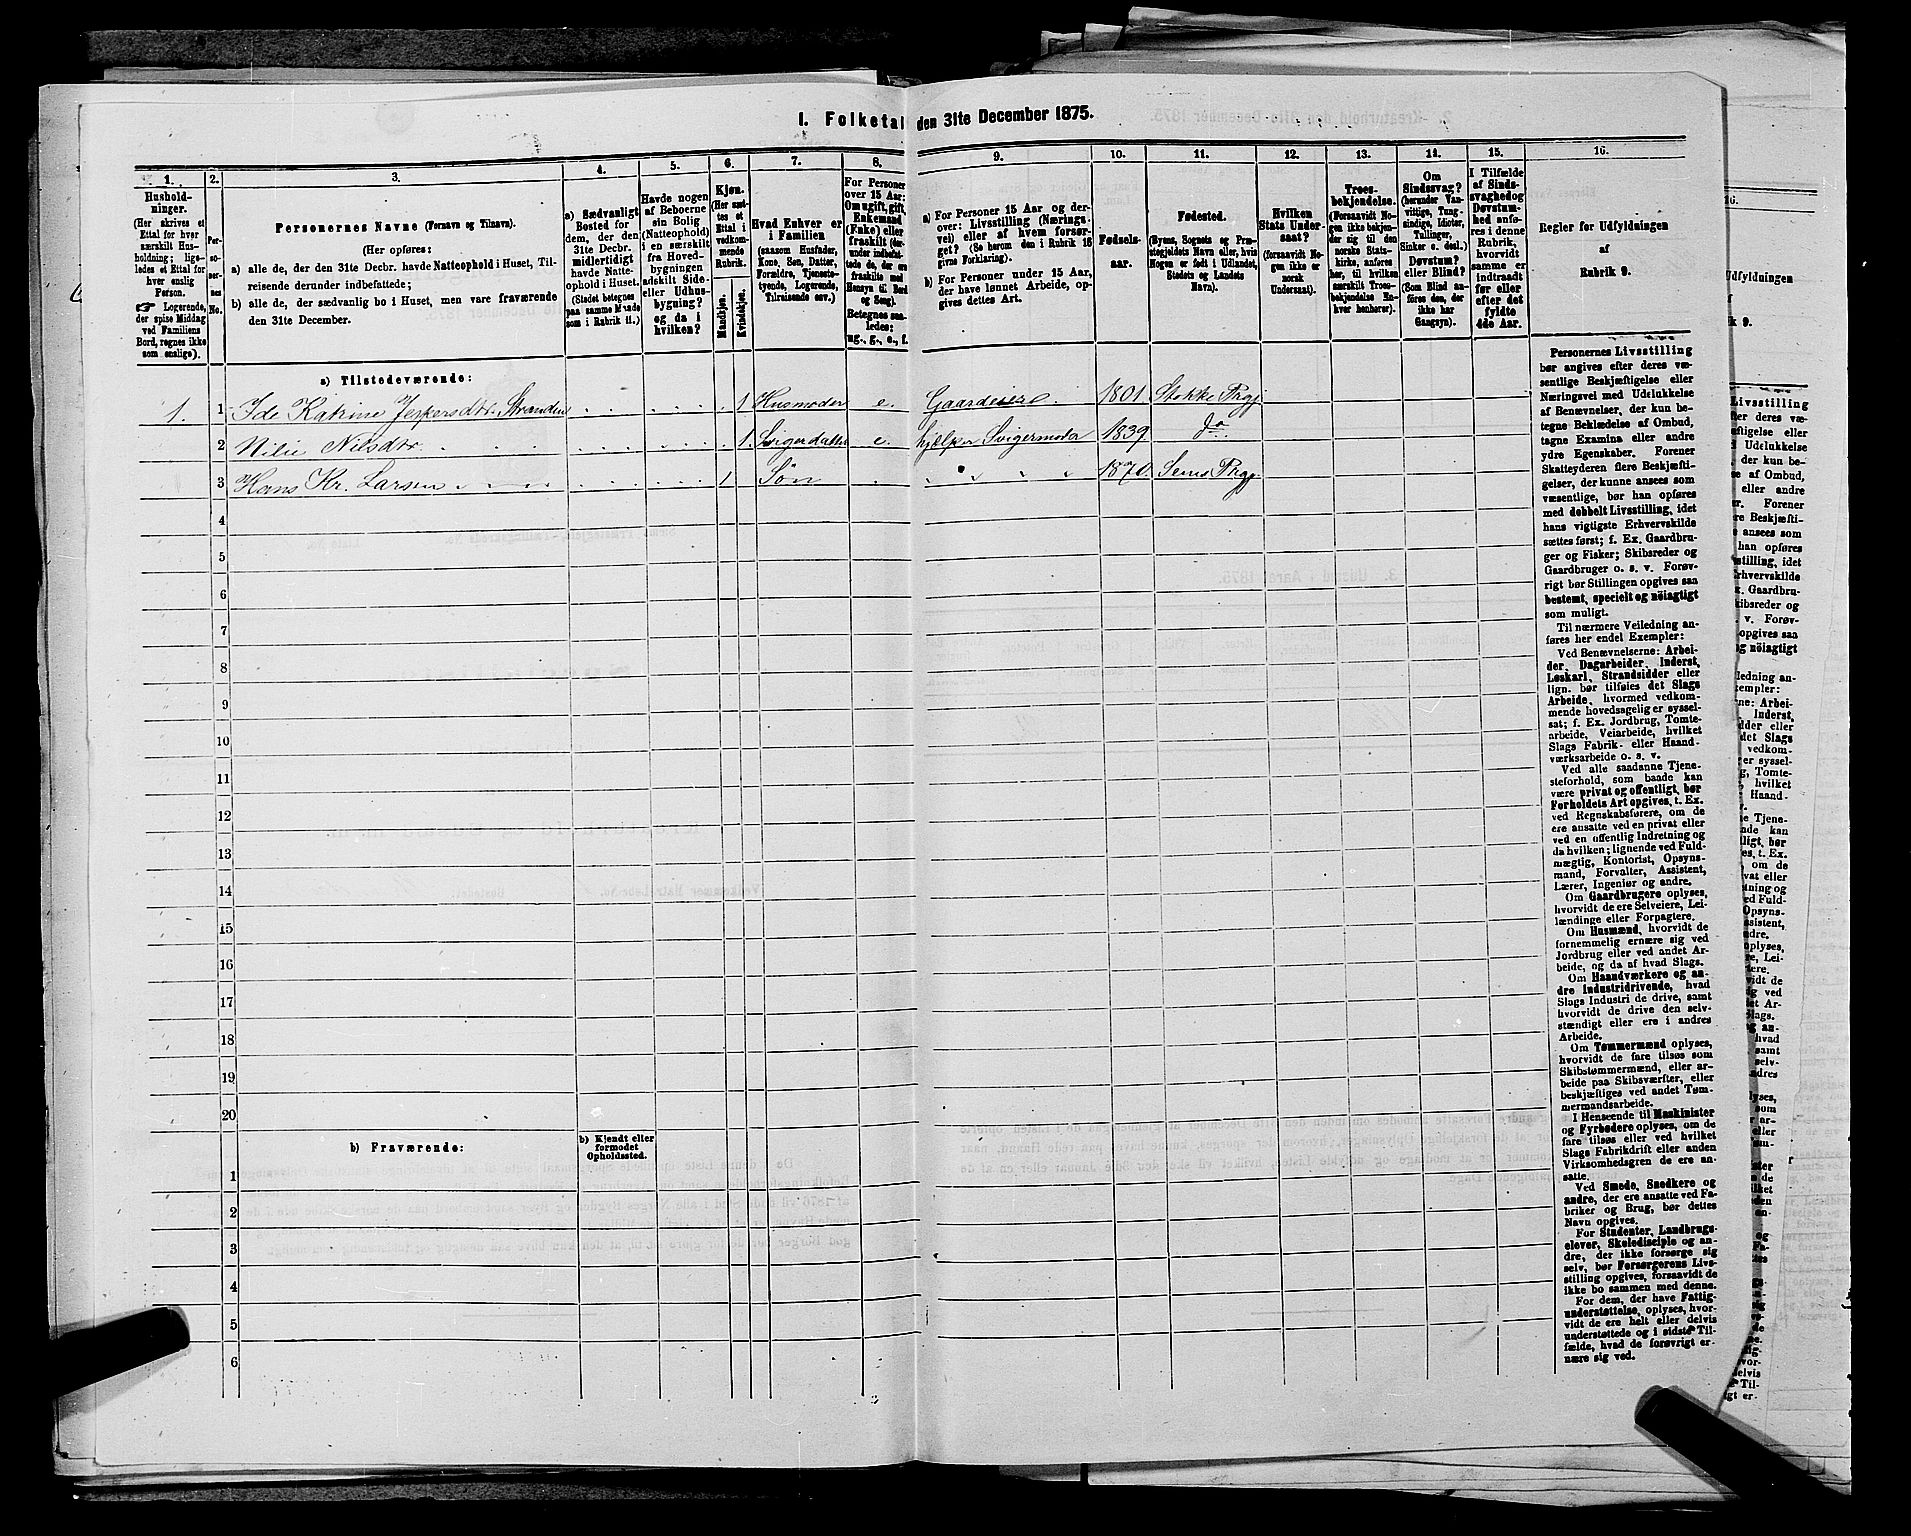 I. Folketal den 31te December 1875.
1.
2.
3.
4.
5.
6.
7.
8.
9.
10.
11.
12.
13.
14.
15.
16.
Hushold-
ninger.
(Her skrives et
Ettal for hver
særskilt Hus-
holdning; lige-
ledes et Ettal for
hver enslig
Person.
☞ Logerende,
der spise Middag
ved Familiens
Bord, regnes ikke
som enslige).
Per-
so-
ner-
nes
No.
Personernes Navne (Fornavn og Tilnavn).
(Her opføres:
a) alle de, der den 31te Decbr. havde Natteophold i Huset, Til-
reisende derunder indbefattede;
b) alle de, der sædvanlig bo i Huset, men vare fraværende
den 31te December.
a) Sædvanligt
Bosted for
dem, der den
31te Decbr.
midlertidigt
havde Natte-
ophold i Huset.
(Stedet betegnes
paa samme Maade
som i Rubrik 11.)
Havde nogen
af Beboerne
sin Bolig
(Natteophold)
i en særskilt
fra Hoved-
bygningen
adskilt Side-
eller Udhus-
bygning?
og da i
hvilken?
Kjøn.
(Her sæt-
tes et
Ettal i
vedkom-
mende
Rubrik.
Mandkjøn.
Kvindekjøn.
Hvad Enhver er
i Familien
(saasom Husfader,
Kone, Søn, Datter,
Forældre, Tjeneste-
tyende, Logerende,
Tilreisende osv.)
For Personer
over 15 Aar:
Om ugift, gift,
Enkemand
(Enke) eller
fraskilt (der-
under indbefat-
tede de, der ere
fraskilte med
Hensyn til Bord
og Seng).
Betegnes saa-
ledes:
ug., g., e., f.
a) For Personer 15 Aar og der-
over: Livsstilling (Nærings-
vei) eller af hvem forsør-
get? (Se herom den i Rubrik 16
givne Forklaring).
b) For Personer under 15 Aar,
der have lønnet Arbeide, op-
gives dettes Art.
Fødsels-
aar.
Fødested.
(Byens, Sognets og Præ-
stegjeldets Navn eller, hvis
Nogen er født i Udlandet,
Stedets og Landets
Navn).
Hvilken
Stats Under-
saat?
(forsaavidt No-
gen ikke er
norsk
Undersaat).
Troes-
bekjendelse.
(Forsaavidt No-
gen ikke bekjen-
der sig til den
norske Stats-
kirke, anføres
her, til hvilken
særskilt Troes-
bekjendelse En-
hver henhører).
Om
Sindssvag?
(herunder Van-
vittige, Tung-
sindige, Idioter,
Tullinger,
Sinker o. desl.)
Døvstum?
eller Blind?
(Som Blind an-
føres den, der
ikke har
Gangsyn).
I Tilfælde
af Sinds-
svaghed og
Døvstum-
hed anfø-
res i denne
Rubrik,
hvorvidt
samme er
indtraadt
før eller
efter det
fyldte
4de Aar.
Regler for Udfyldningen
af
Rubrik 9.
a) Tilstedeværende:
1. 1 Ide Katrine Jespersdtr. Stranden 1 Husmoder e. Gaardeier 1801 Stokke Prgj
2 Nilsdtr 1. Svigerdatter e. hjælper Svigermoder 1839 do
3 Hans Kr. Larsen 1 Søn 1870 Sems Prgj
4
5
6
7
8
9
10
11
12
13
14
15
16
17
18
19
20
b) Fraværende:
b) Kjendt eller
formodet
Opholdssted.
1
2
3
4
5
6
Personernes Livsstilling
bør angives efter deres væ-
sentlige Beskjæftigelse eller
Næringsvei med Udelukkelse
af Benævnelser, der kun be-
tegne Beklædelse af Ombud,
tagne Examina eller andre
ydre Egenskaber. Forener
Skatteyderen flere Beskjæfti-
gelser, der kunne ansees som
væsentlige, bør han opføres
med dobbelt Livsstilling, idet
hans vigtigste Erhvervskilde
sættes først; f. Ex. Gaardbru-
ger og Fisker; Skibsreder og
Gaardbruger o. s. v. Forøv-
rigt bør Stillingen opgives saa
bestemt, specielt og nöiagtigt
som muligt.
Til nærmere Veiledning an-
føres her endel Exempler:
Ved Benævnelserne: Arbei-
der, Dagarbeider, Inderst,
Løskarl, Strandsidder eller
lign. bør tilføies det Slags
Arbeide, hvormed vedkom-
mende hovedsagelig er syssel-
sat; f. Ex. Jordbrug, Tomte-
arbeide, Veiarbeide, hvilket
Slags Fabrik- eller Haand-
værksarbeide o. s. v.
Ved alle saadanne Tjene-
steforhold, som baade kan
være privat og offentligt, bør
Forholdets Art opgives, t. Ex.
ved Regnskabsførere, om de
ere ansatte ved en privat eller
ved en offentlig Indretning og
da hvilken; lignende ved Fuld-
mægtig, Kontorist, Opsyns-
mand, Forvalter, Assistent,
Lærer, Ingeniør og andre.
Om Gaardbrugere oplyses,
hvorvidt de ere Selveiere, Lei-
lændinge eller Forpagtere.
Om Husmænd, hvorvidt de
fornemmelig ernære sig ved
Jordbrug eller ved andet Ar-
beide, og da af hvad Slags.
Om Haandværkere og an-
dre Industridrivende, hvad
Slags Industri de drive, samt
hvorvidt de drive den selv-
stændigt eller ere i andres
Arbeide.
Om Tømmermænd oplyses,
hvorvidt de fare tilsøs som
Skibstømmermænd, eller ar-
beide paa Skibsværfter, eller
beskjæftiges ved andet Tøm-
mermandsarbeide.
I Henseende til Maskinister
og Fyrbødere oplyses, om de
fare tilsøs eller ved hvilket
Slags Fabrikdrift eller anden
Virksomhedsgren de ere an-
satte.
Ved Smede, Snedkere og
andre, der ere ansatte ved Fa-
briker og Brug, bør dettes
Navn opgives.
For Studenter, Landbrugs-
elever, Skoledisciple og an-
dre, der ikke forsørge sig
selv, bør Forsørgerens Livs-
stilling opgives, forsaavidt de
ikke bo sammen med denne.
For dem, der have Fattig-
understøttelse, oplyses, hvor-
vidt de ere helt eller delvis
understøttede og i sidste Til-
fælde, hvad de forøvrigt er-
nære sig ved.